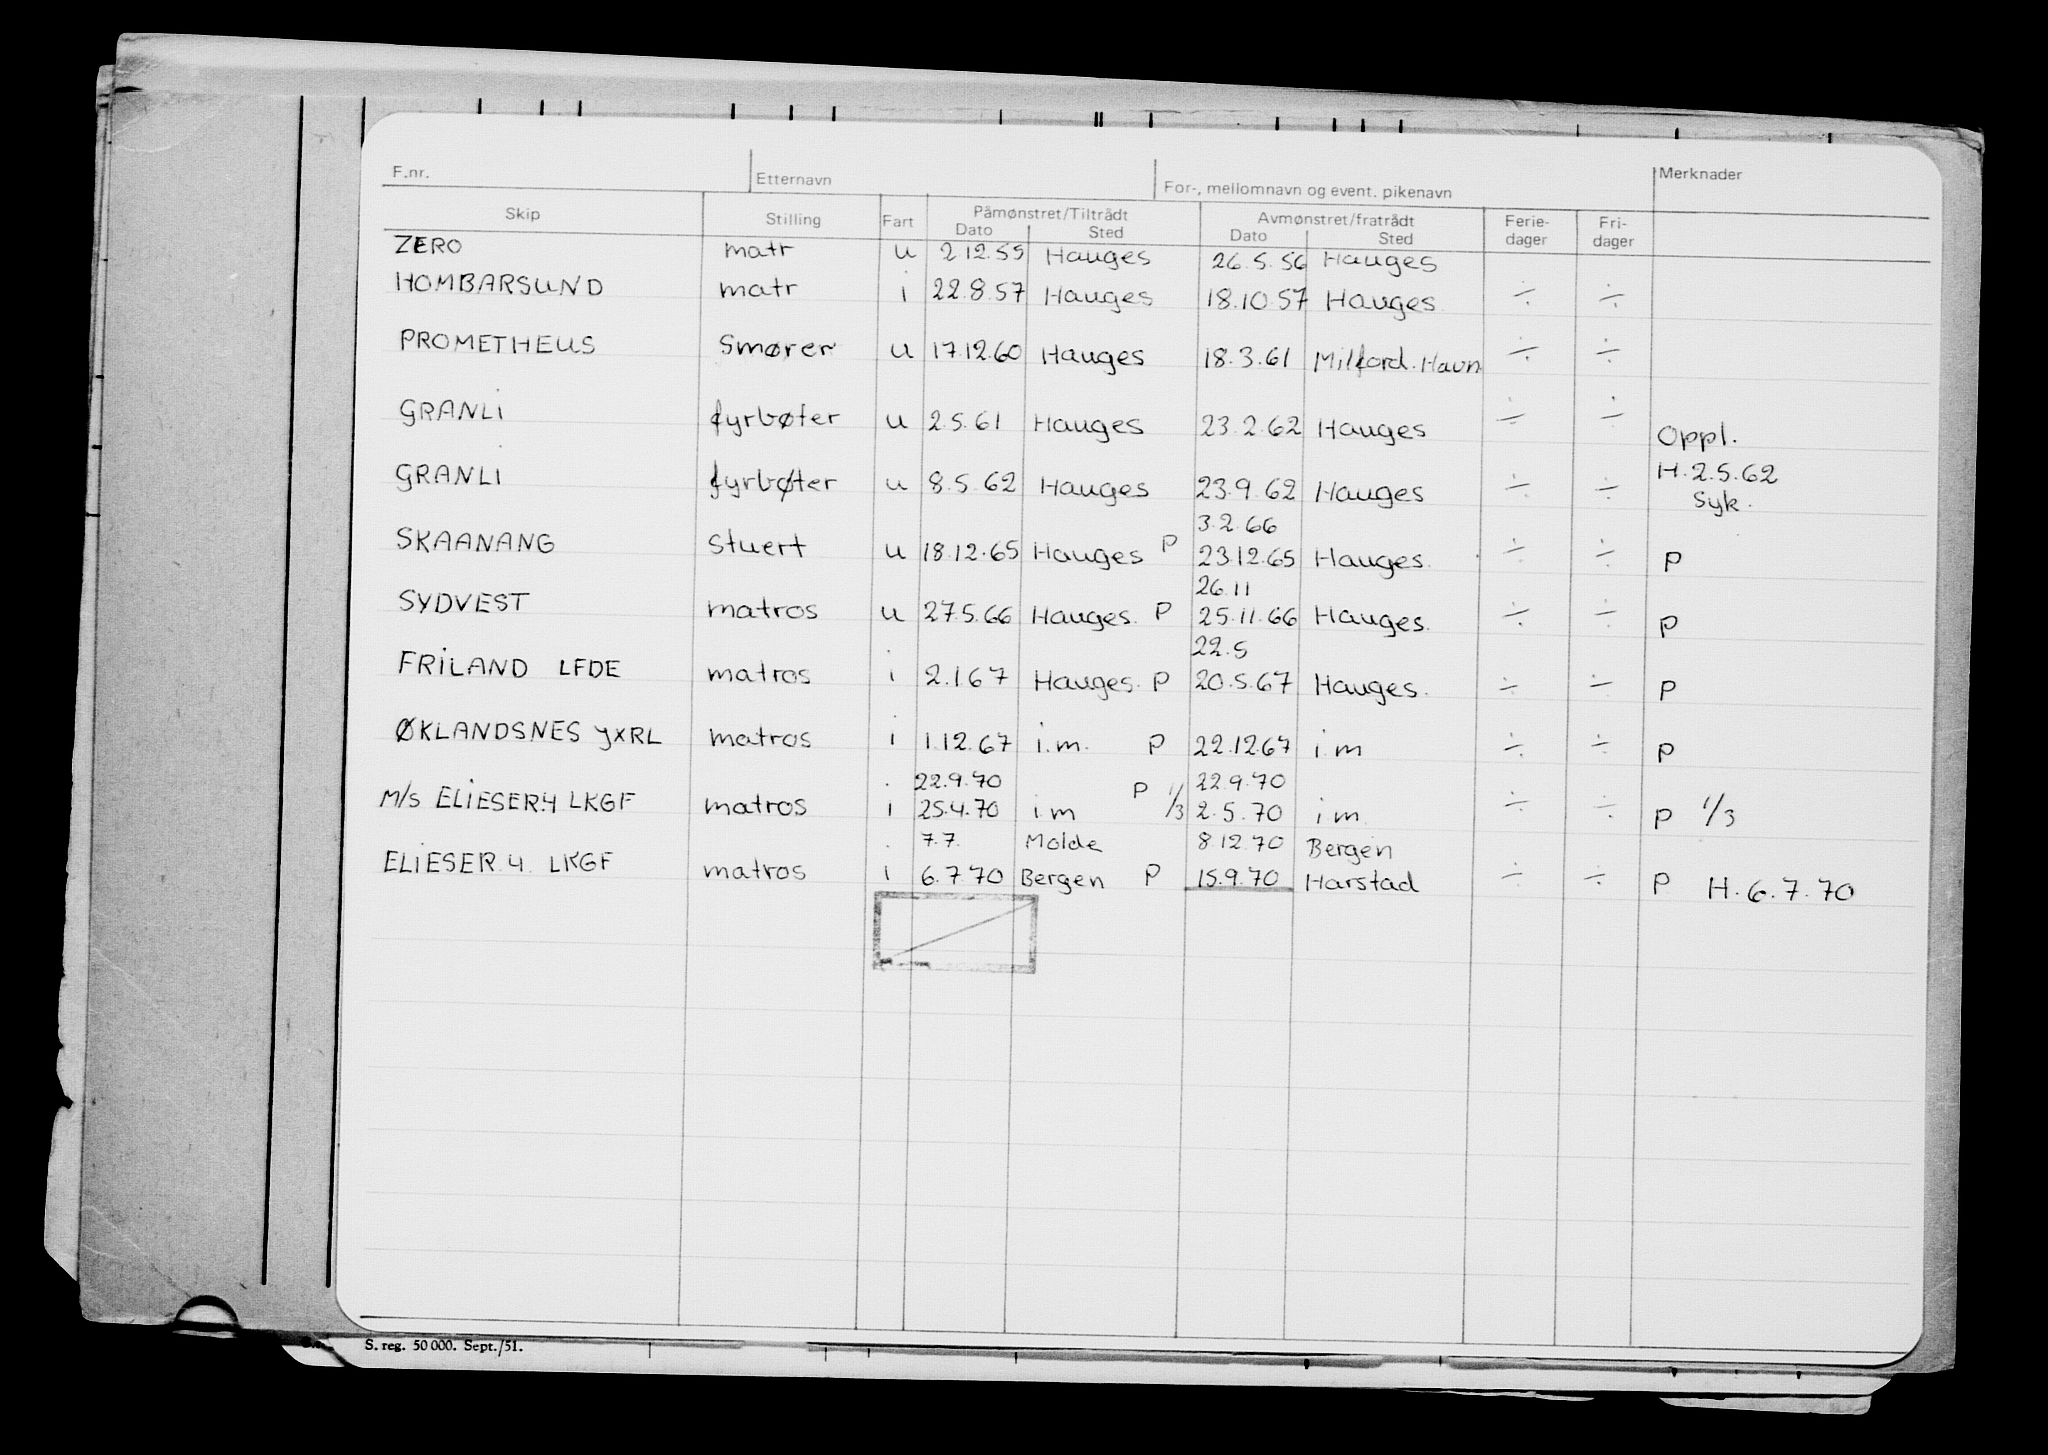 F.nr. Etternavn For-, mellomnavn og event. pikenavn Merknader
Skip Stilling Fart Påmønstret/Tiltrådt Avmønstret/fratrådt Ferie-dager Fri-dager
Dato Sted Dato Sted
ZERO matr u 2.12.55 Hauges 26.5.56 Hauges
HOMBARSUND matr i 22.8.57 Hauges 18.10.57 Hauges ÷ ÷
PROMETHEUS Smører u 17.12.60 Hauges 18.3.61 Milford.Havn ÷ ÷
GRANLI fyrbøter u 2.5.61 Hauges 23.2.62 Hauges ÷ ÷ Oppl.
H.2.5.62
GRANLI fyrbøter u 8.5.62 Hauges 23.9.62 Hauges ÷ ÷ Syk.
3.2.66
SKAANANG Stuert u 18.12.65 Hauges P 23.12.65 Hauges. ÷ ÷ P
26.11
SYDVEST matros u 27.5.66 Hauges. P 25.11.66 Hauges. ÷ ÷ P
22.5
FRILAND LFDE matros i 2.1.67 Hauges. P 20.5.67 Hauges. ÷ ÷ P
ØKLANDSNES YXRL matros i 1.12.67 i.m. P 22.12.67 i.m ÷ ÷ P
22.9.70 22.9.70
M/S ELIESER.4 LKGF matros i 25.4.70 i.m P 1/3 2.5.70 i m. ÷ ÷ P 1/3
7.7. Molde 8.12.70 Bergen
ELIESER.4. LKGF matros i 6.7.70 Bergen P 15.9.70 Harstad ÷ ÷ P H.6.7.70
S. reg. 50 000. Sept./51.